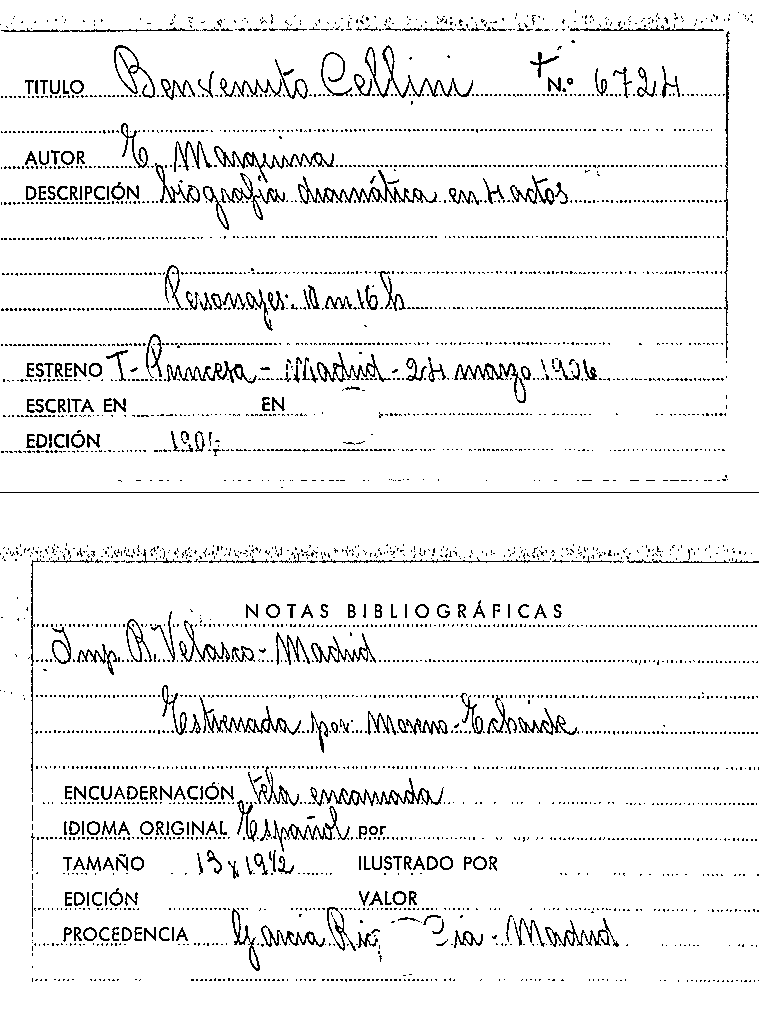 TITULO Benvenuto Cellini + N.º 6724
AUTOR E. Marquina
DESCRIPCIÓN biografía dramática en 4 actos
Personajes: 10 m 16 h
ESTRENO T- Princesa - Madrid - 24 marzo 1906
ESCRITA EN EN
EDICIÓN
NOTAS BIBLIOGRÁFICAS
Imp. R. Velasco - Madrid
Estrenada por: Moreno - Echaide
ENCUADERNACIÓN tela encarnada
IDIOMA ORIGINAL Español por
TAMAÑO 13 x 19 1/2 ILUSTRADO POR
EDICIÓN VALOR
PROCEDENCIA García Rico Cia - Madrid